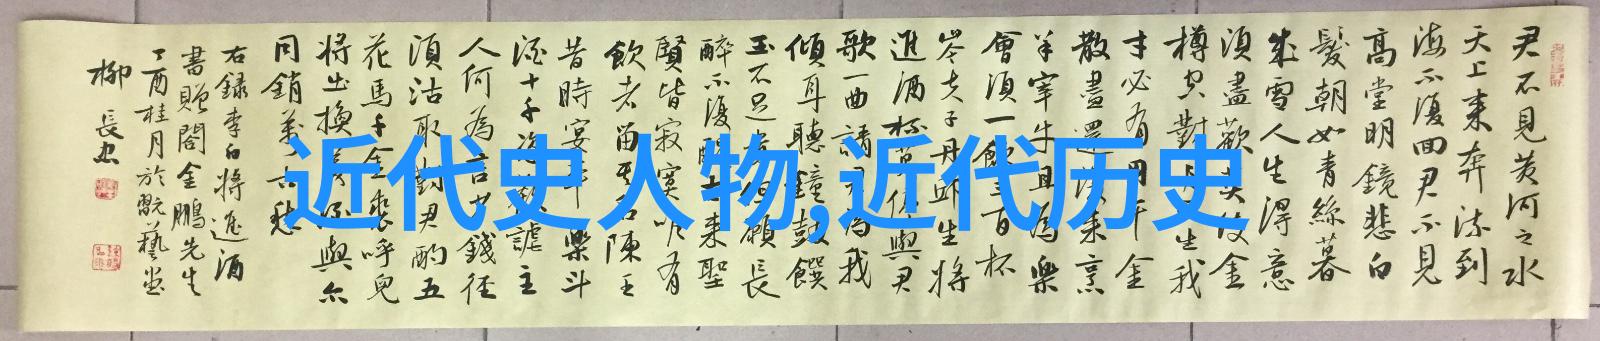 君不見黄河之水
天上来奔流到
海不復回君不見
高堂明鏡悲白
髮朝如青絲暮
成雪人生得意
須盡歡莫使金
樽空對生我
才必有用千金
散盡還復来烹
羊宰牛且為樂
會須一飲三百杯
岑夫子丹邱生將
進酒杯莫停與君
歌一曲請君為我
傾耳聽鐘鼓饌
玉不足貴但願長
醉不復醒来聖
賢皆寂寞唯有
飲者留其名陳王
昔時宴平樂斗
酒十千恣歡謔主
人何為言少錢径
須沽取對君酌五
花馬千金裘呼兒
將出換美酒與尔
同銷萬古愁
右録李白將進酒
書贈閣金鵬先生
丁酉桂月於翫藝堂
柳長忠
近代史人物,近代历史